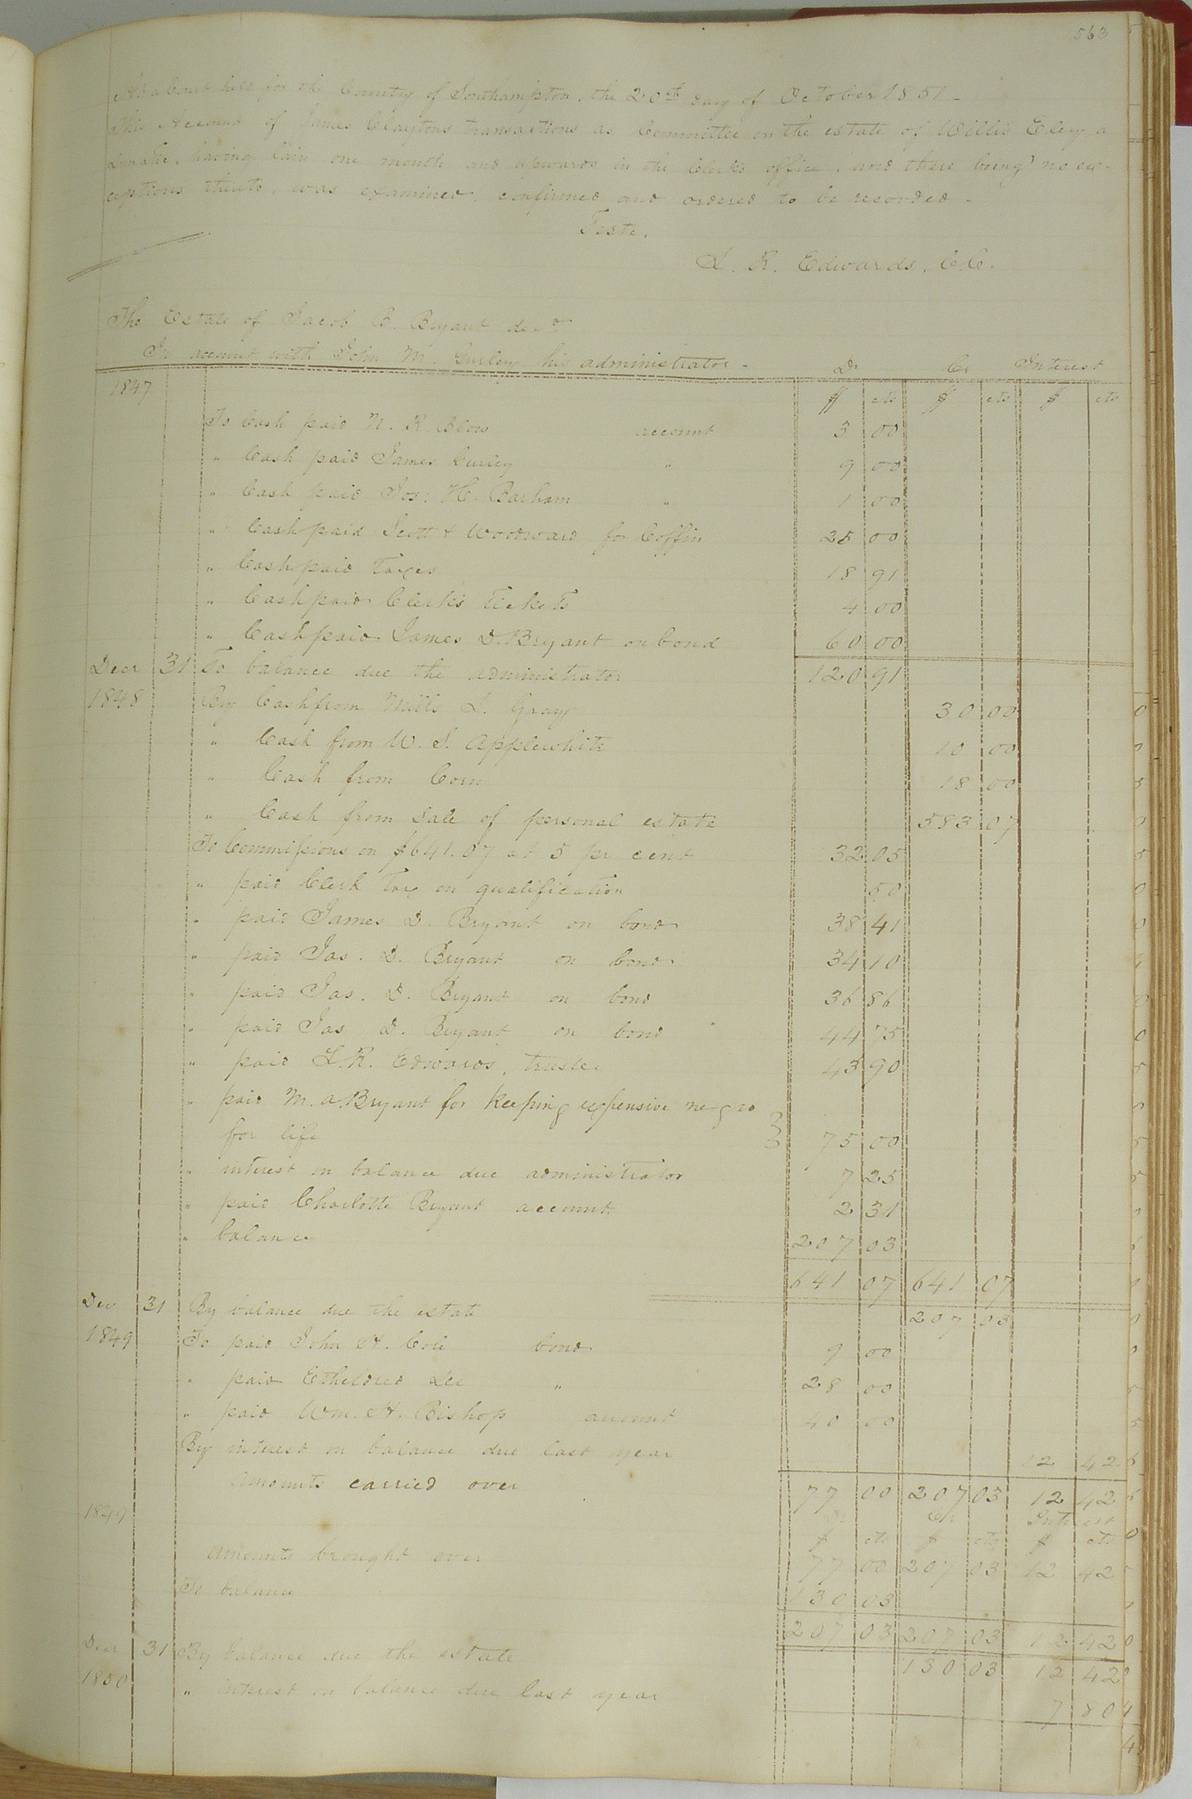 563
At a Court held for the County of Southampton, the 20th day of October 1851 -
This Account of James Claytons transactions as Committee on the estate of Willis Eley, a
Lunatic, having lain one month and upwards in the Clerks office, and there being no ex-
ceptions thereto, was examined, confirmed and ordered to be recorded -
Teste,
L. R. Edwards, C.C.
The Estate of Jacob B. Bryant decd
In account with John M. Gurley his administrator -
Dr Cr Interest
1847 $ cts $ cts $ cts
To Cash paid N. R. Blow account 3 00
" Cash paid James Gurley " 9 00
" Cash paid Jos: H. Barham " 1 00
" Cash paid Scott & Woodward for Coffin 25 00
" Cash paid Taxes 18 91
" Cash paid Clerk's Tickets 4 00
" Cash paid James D. Bryant on bond 60 00
Decr 31 To balance due the administrator 120 91
1848 By Cash from Mills L. Gray 30 00
" Cash from W. S. Applewhite 10 00
" Cash from Corn 18 00
" Cash from Sale of personal estate 583 07
To Commissions on $641.07 at 5 pr cent 32 05
" paid Clerk Tax on qualification 50
" paid James D. Bryant on bond 38 41
" paid Jas. D. Bryant on bond 34 10
" paid Jas. D. Bryant on bond 36 86
" paid Jas D. Bryant on bond 44 75
" paid L. R. Edwards, trustee 43 90
" paid M. A. Bryant for keeping expensive negro
for life 75 00
" interest on balance due administrator 7 25
" paid Charlotte Bryant account 2 31
" balance 207 03
641 07 641 07
Dec 31 By balance due the estate 207 03
1849 To paid John H. bond 9 00
" paid Etheldred Lee " 28 00
" paid Wm. H. Bishop account 40 00
By interest on balance due last year 12 42
Amounts carried over 77 00 207 03 12 42
1849 Dr Cr Interest
$ cts $ cts $ cts
Amounts brought over 77 00 207 03 12 42
To balance 130 03
207 03 207 03 12 42
Decr 31 By balance due the estate 130 03 12 42
1850 " interest on balance due last year 7 80